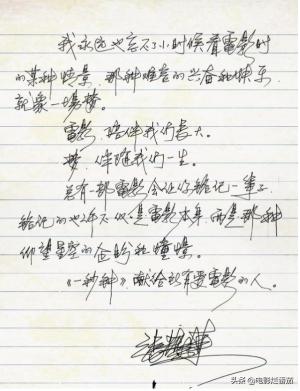 我永远也忘不了小时候看電影时
的某种情景，那种难言的兴奋和快乐，
就象一場梦。
電影，陪伴我们长大。
梦，伴随我们一生。
总有一部電影会让你铭记一辈子，
铭记的也许不仅是電影本身，而是那种
仰望星空的企盼和憧憬。
《一秒种》，献给所有爱電影的人。
张艺谋
头条 @电影烂番茄